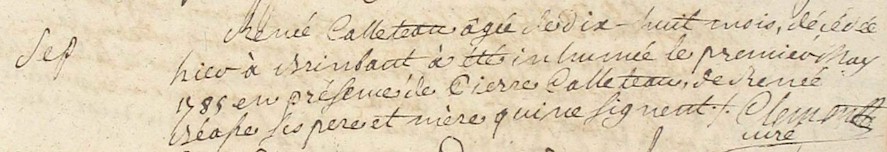 Sep
Renée Calleteau âgée de dix-huit mois, décédée
hier à Brinbaut à été inhumée le premier May
1785 en présence de Pierre Calleteau, de Renée
Réape ses pere et mère qui ne signent /. Clemont
curé